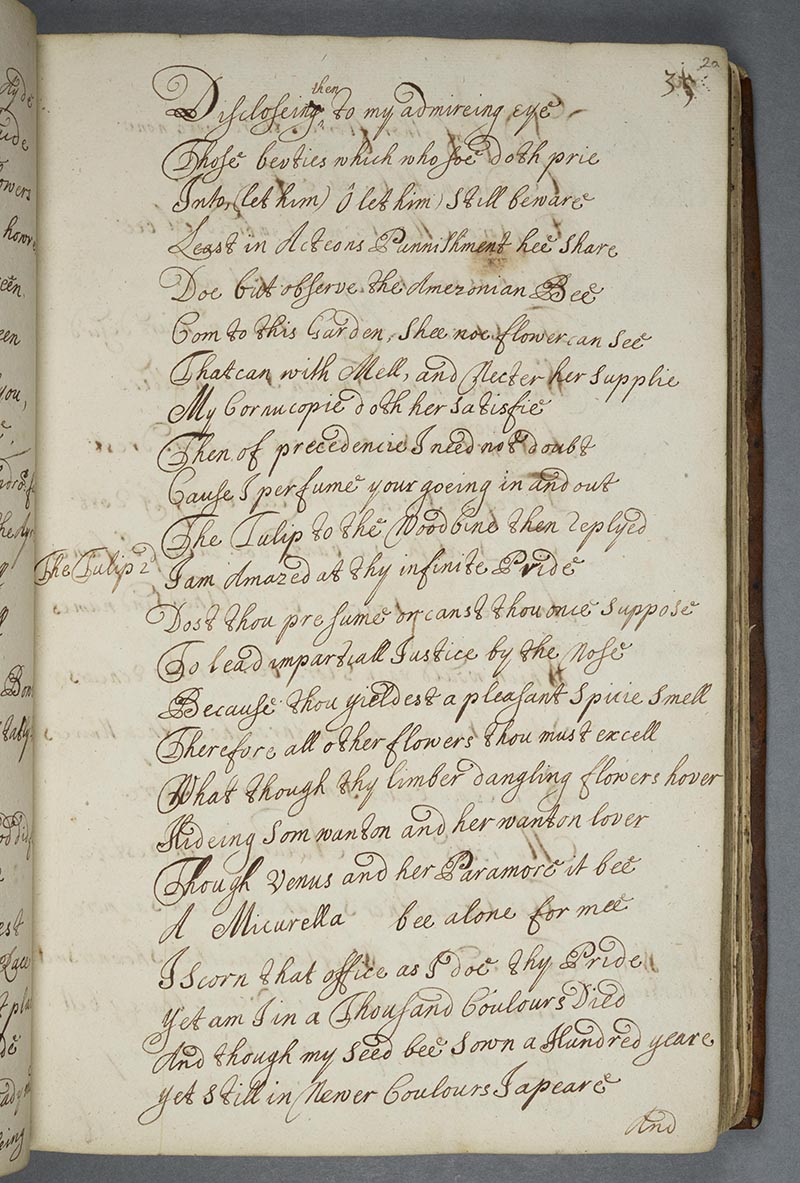 20
35
then
Discloseing to my admireing eye
Those bevties which who soe doth prie
Into, (let him) ô let him) still beware
Least in Acteons Punnishment hee share
Doe but observe the Amezonian Bee
Com to this Garden, shee noe flower can see
That can with Mell, and Necter her supplie
My Cornucopie doth her satisfie
Then of precedencie I need not doubt
Cause I perfume your goeing in and out
The Tulip to the Woodbine then replyed
The Tulip 2 I am Amazed at thy infinite Pride
Dost thou presume or canst thou once suppose
To lead impartiall Justice by the Nose
Because thou yieldest a pleasant Spicie smell
Therefore all other flowers thou must excell
What though thy limber dangling flowers hover
Hideing som wanton and her wanton lover
Though Venus and her Paramore it bee
A Micurella bee alone for mee
I scorn that office as I doe thy Pride
Yet am I in a Thousand Coulours Died
And though my seed bee sown a Hundred yeare
Yet still in Newer Coulours I apeare
And